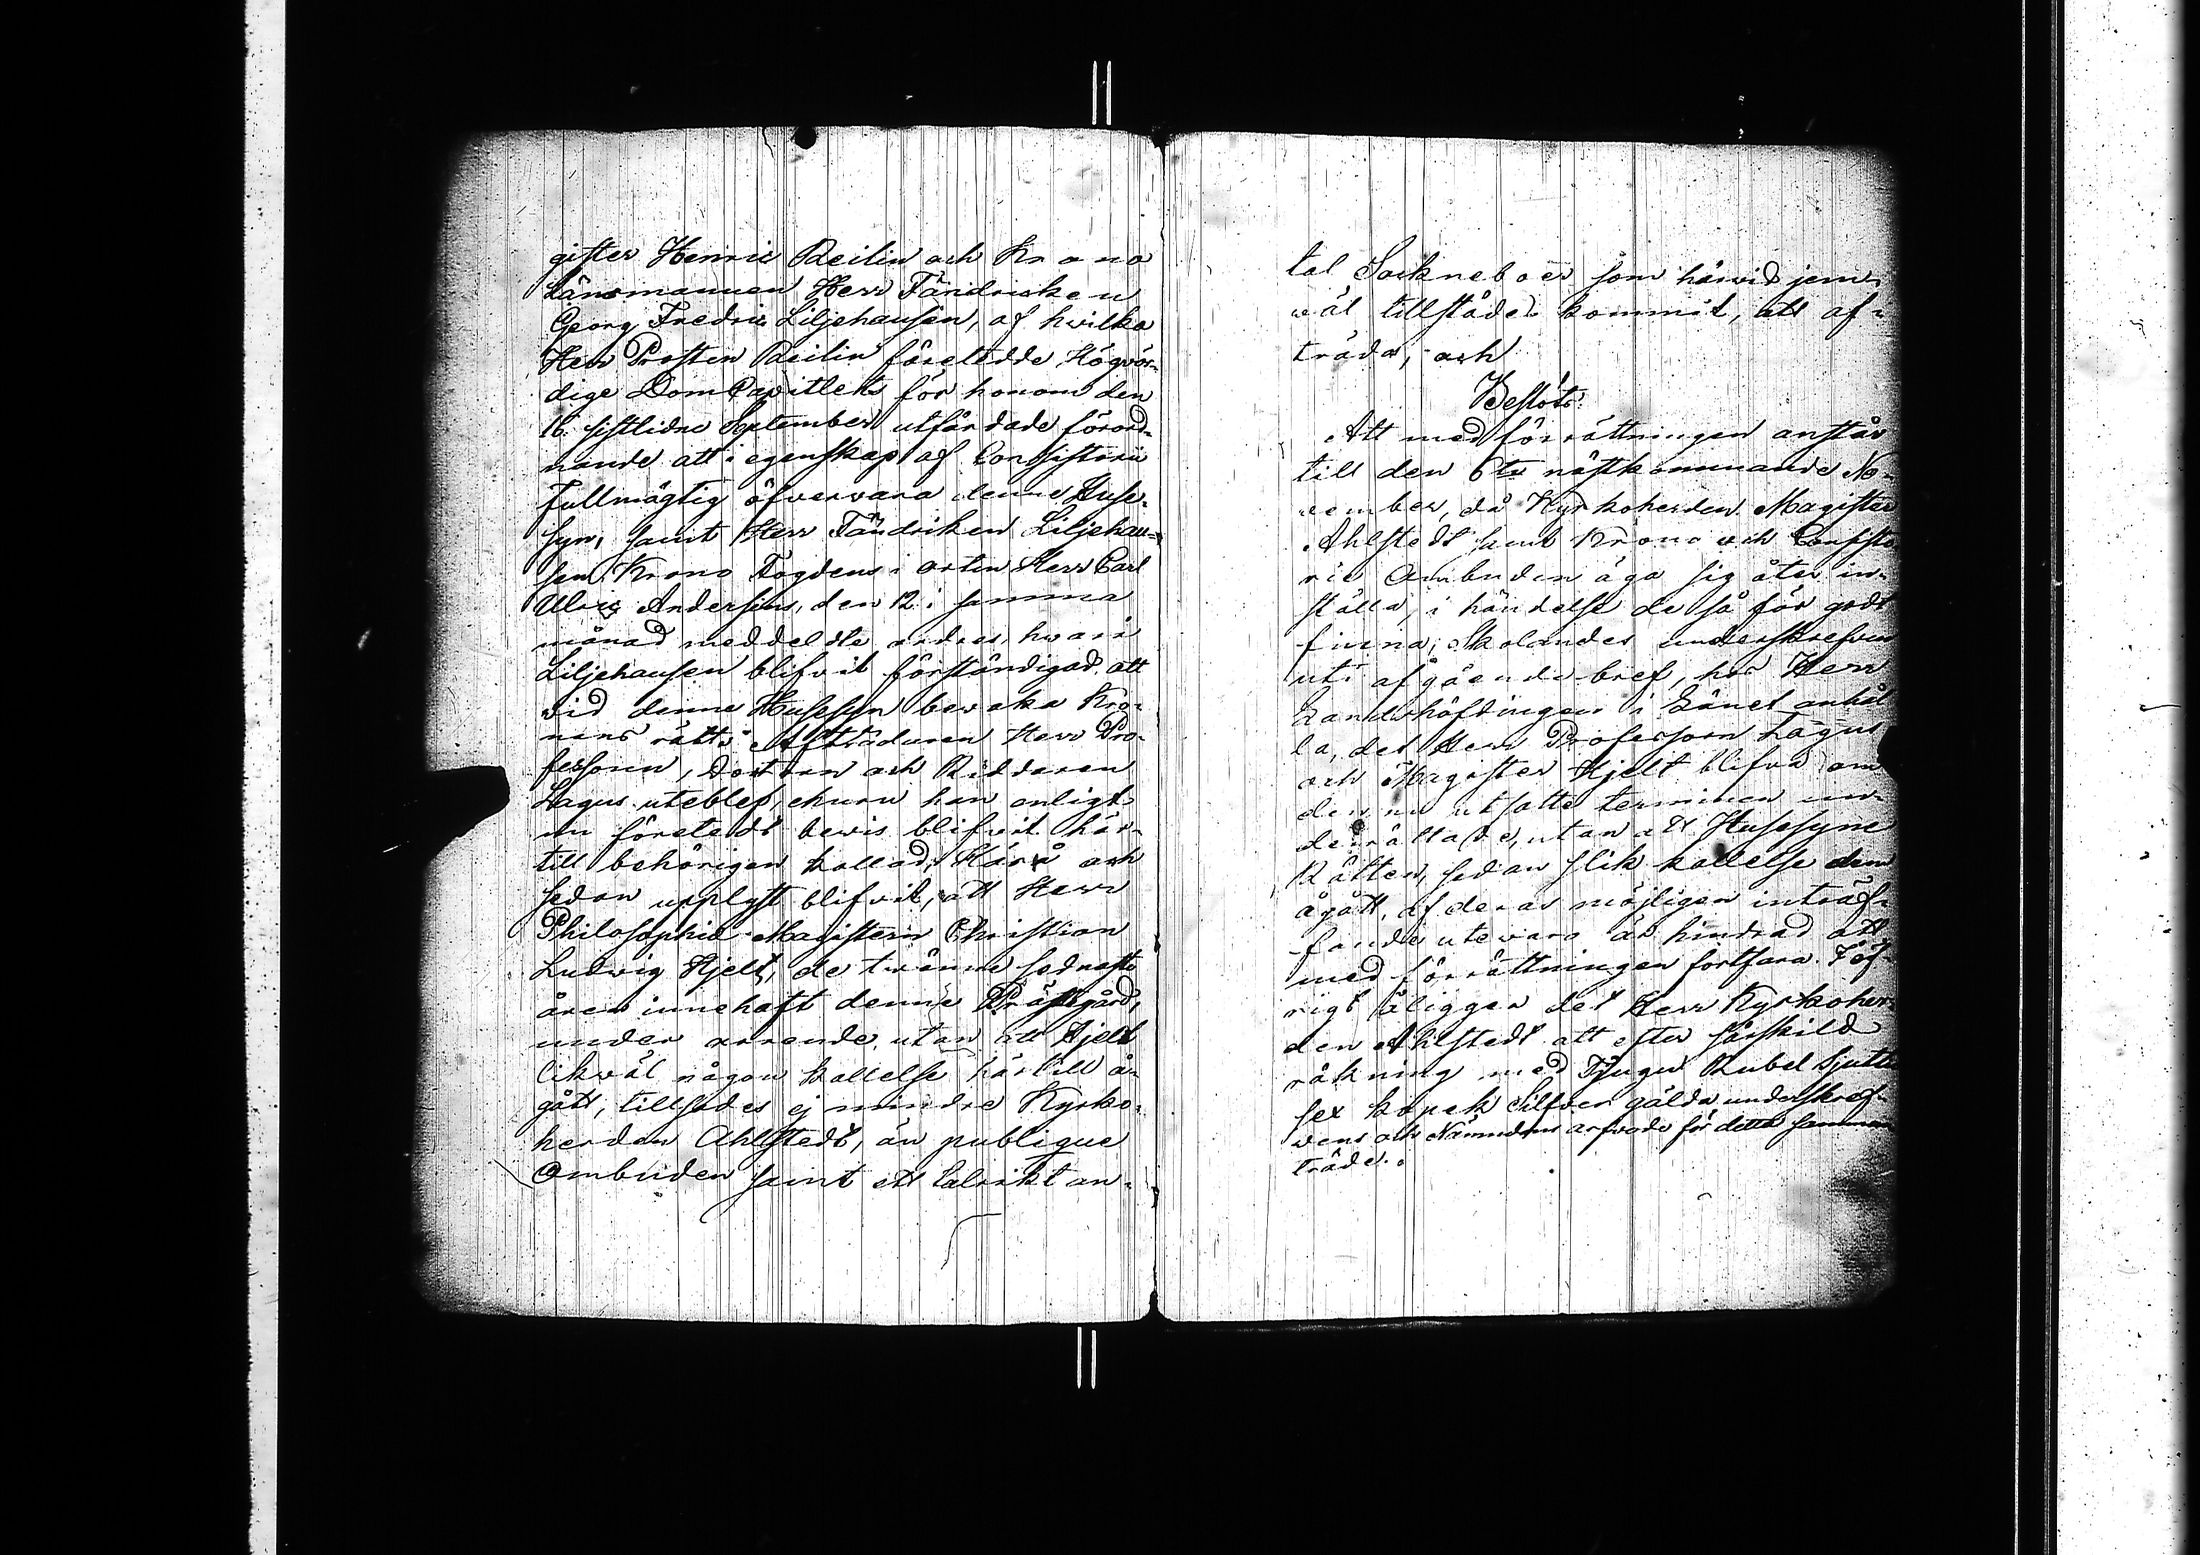 gister Henric Deilin och Krono
Länsmannen Herr Fändricken
Georg Fredric Liljehausen, af hvilka
Herr Prosten Deilin företedde Högvör-
dige DomCapitlets för honom den
16 sistlidne September utfärdade förord-
nande att i egenskap af Consistorii
Fullmägtig öfvervara denne Huse-
syn, samt Herr Fändriken Liljehau-
sen Krono Fogdens i orten Herr Carl
Ulric Andersins, den 12 i samma
månad meddelte ordres hvari
Liljehausen blifvit förständigad att
vid denne Husesyn bevaka Kro-
nans rätt; Afträdaren Herr Pro-
fessorn, Doctorn och Riddaren
Lagus uteblef, ehuru han enligt
nu företedt bevis blifvit här-
till behörigen kallad; Härå och
sedan upplyst blifvit, att Herr
Philosophie Magistern Christian
Ludvig Hjelt, de tvänne sednaste
åren innehaft denne Prästgård,
under arrende, utan att Hjelt
likväl någon kallelse härtill å-
gått, tillsades ej mindre Kyrko-
herden Ahlstedt, än publique
Ombuden samt ett talrikt an-
tal Sockneboer som härvid jem-
väl tillstädes kommit, att af-
träda, och
Beslöts:
Att med förrättningen anstår
till den 6te nästkommande No-
vember, då Kyrkoherden Magister
Ahlstedt samt Krono och Consisto-
rie Ombuden äga sig åter in-
ställa, i händelse de så för godt
finna; Skolandes underskrefven
uti afgående bref, hos Herr
Landshöfdingen i Länet anhål-
la, det Herr Professorn Lagus
och Magister Hjelt blifva om
den nu utsatte terminen un-
derrättade, utan att Husesyne
Rätten, sedan slik kallelse dem
ågått, af deras möjligen inträf-
fande utevaro är hindrad att
med förrättningen fortfara. Föf-
rigt åligger det Herr Kyrkoher-
den Ahlstedt att efter särskild
räkning med Tjugu Rubel sjutti
sex kopek Silfver gälda underskref-
vens och Nämndens arfvode för detta samman
träde.